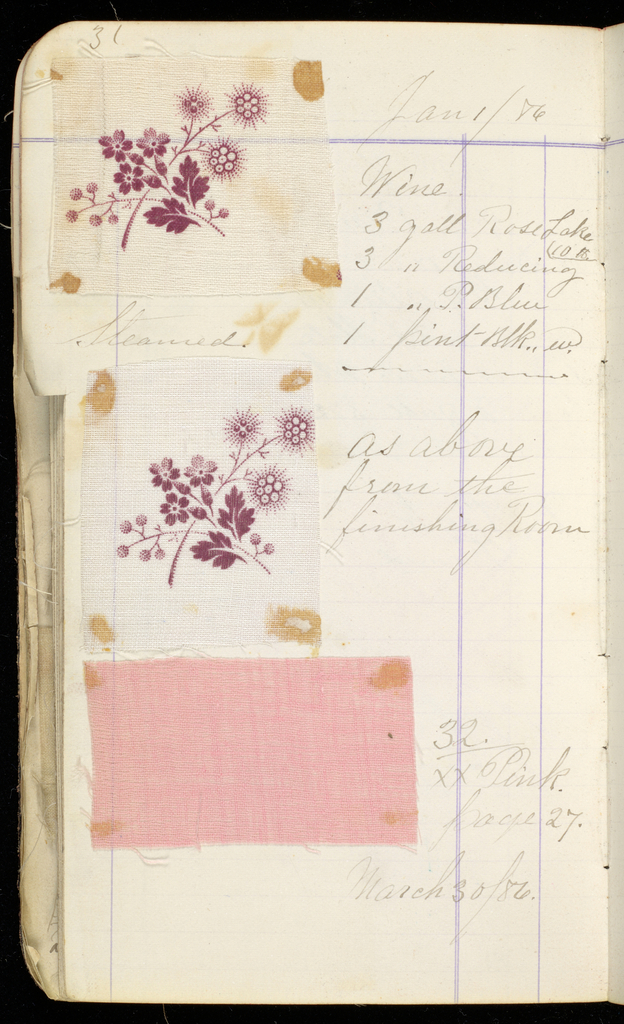 31
Jan 1/86
Wine.
3 gall Rose Lake
3 " Reducing
1 " P. Blue
1 pint Blk.
Steamed.
as above
from the
finishing Room
32.
XX Pink.
page 27.
March 30/86.